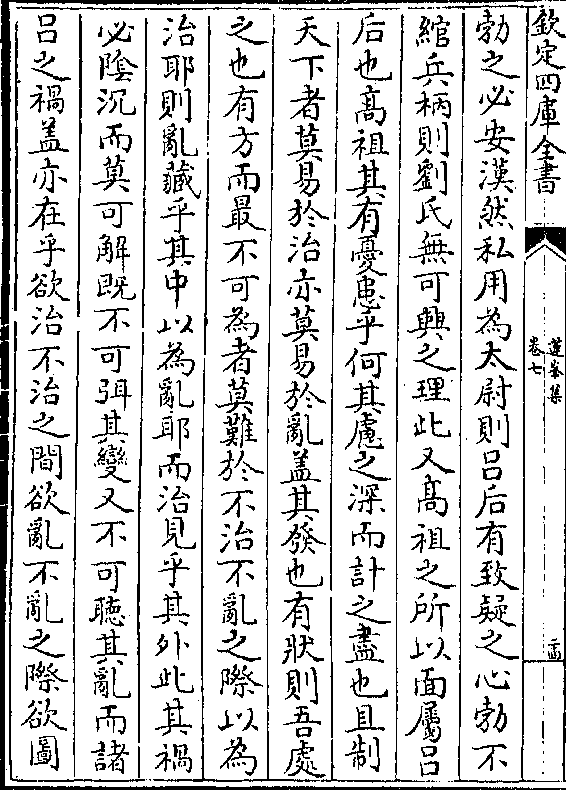 欽定四庫全書
蓮峯集
卷七
勃之必安漢然私用為太尉則吕后有致疑之心勃不
綰兵柄則劉氏無可興之理此又髙祖之所以面屬吕
后也髙祖其有憂患乎何其慮之深而計之盡也且制
天下者莫易於治亦莫易於亂盖其發也有狀則吾處
之也有方而最不可為者莫難於不治不亂之際以為
治耶則亂藏乎其中以為亂耶而治見乎其外此其禍
必陰沉而莫可解既不可弭其變又不可聽其亂而諸
吕之禍盖亦在乎欲治不治之間欲亂不亂之際欲圖